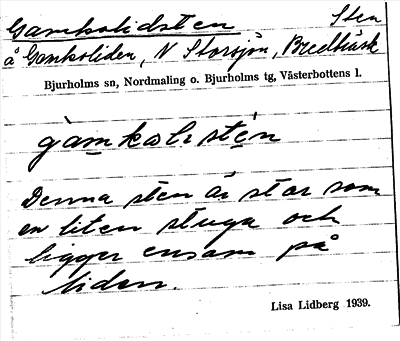 Gamkolidsten Sten
å Gamkoliden, N Storsjön, Bredträsk
Bjurholms sn, Nordmaling o. Bjurholms tg, Västerbottens l.
Denna sten är stor som
en liten stuga och
ligger ensam på
liden.
Lisa Lidberg 1939.